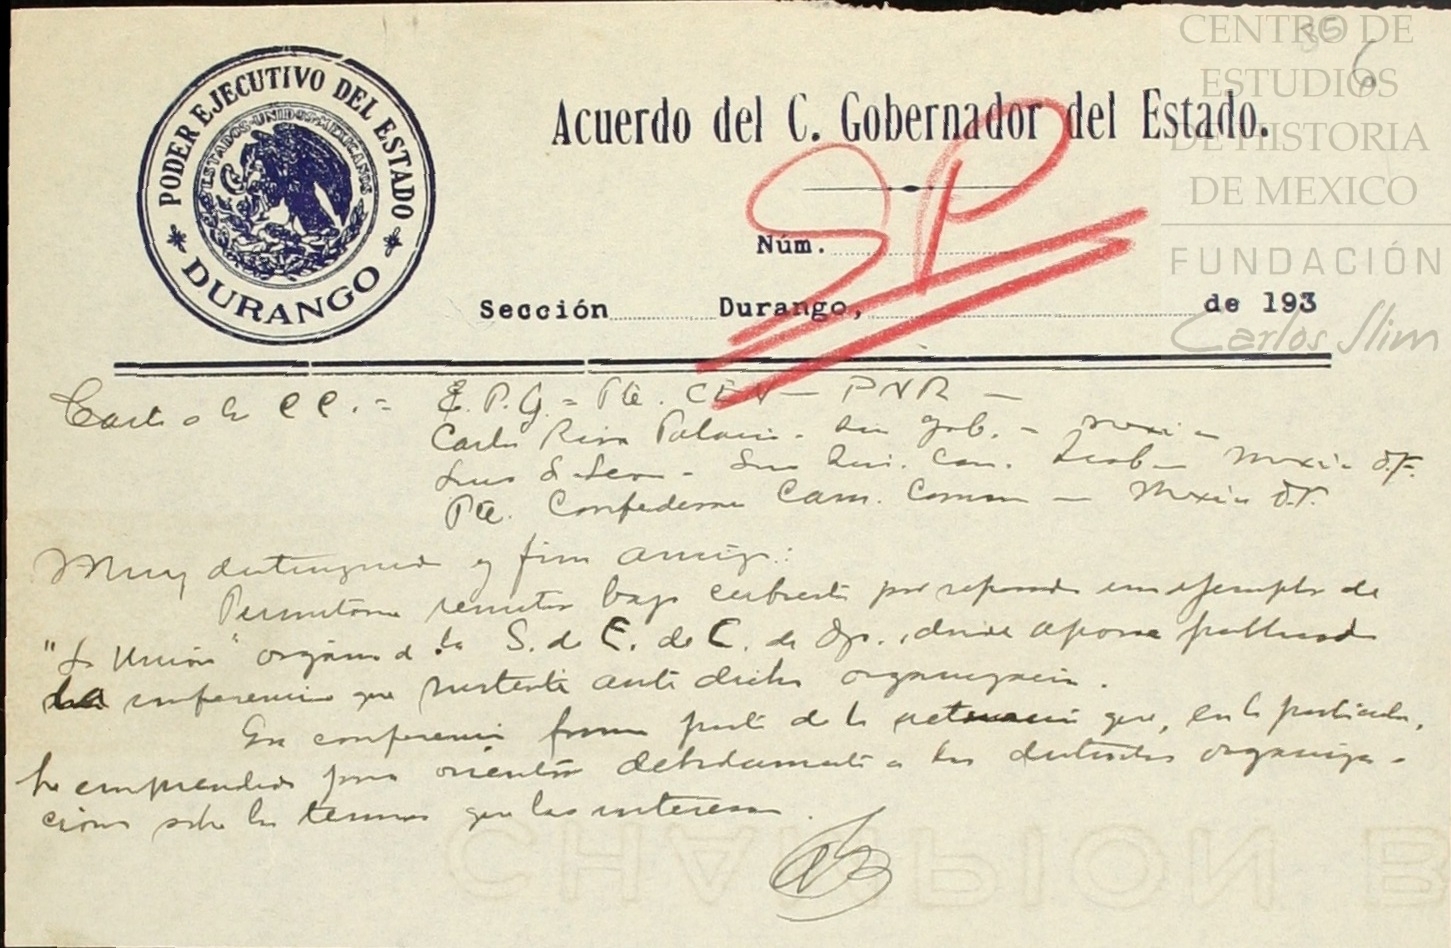 CENTRO DE
ESTUDIOS
DE HISTORIA
DE MEXICO
FUNDACIÓN
Carlos Slim
35
6
PODER EJECUTIVO DEL ESTADO
ESTADOS UNIDOS MEXICANOS
DURANGO
Acuerdo del C. Gobernador del Estado.
SP
Núm.
Sección Durango, de 193
Carta a los CC. = E. P. G. = Pte. CEN — PNR —
Carlos Riva Palacio - gob. -
Luis L. León - D.F.
Pte. Confederación Cam. Comer — México D.F.
Muy distinguido y fino amigo:
Permítome remitir bajo cubierta por separado un ejemplar de
"La Unión" órgano de la S. de E. de C. de Dgo., donde aparece publicada
la conferencia que sustenté ante dicha organización.
Esa conferencia forma parte de la actuación que, en lo particular,
he emprendido para orientar debidamente a las distintas organiza-
ciones sobre los temas que las interesan.
CHAMPION B